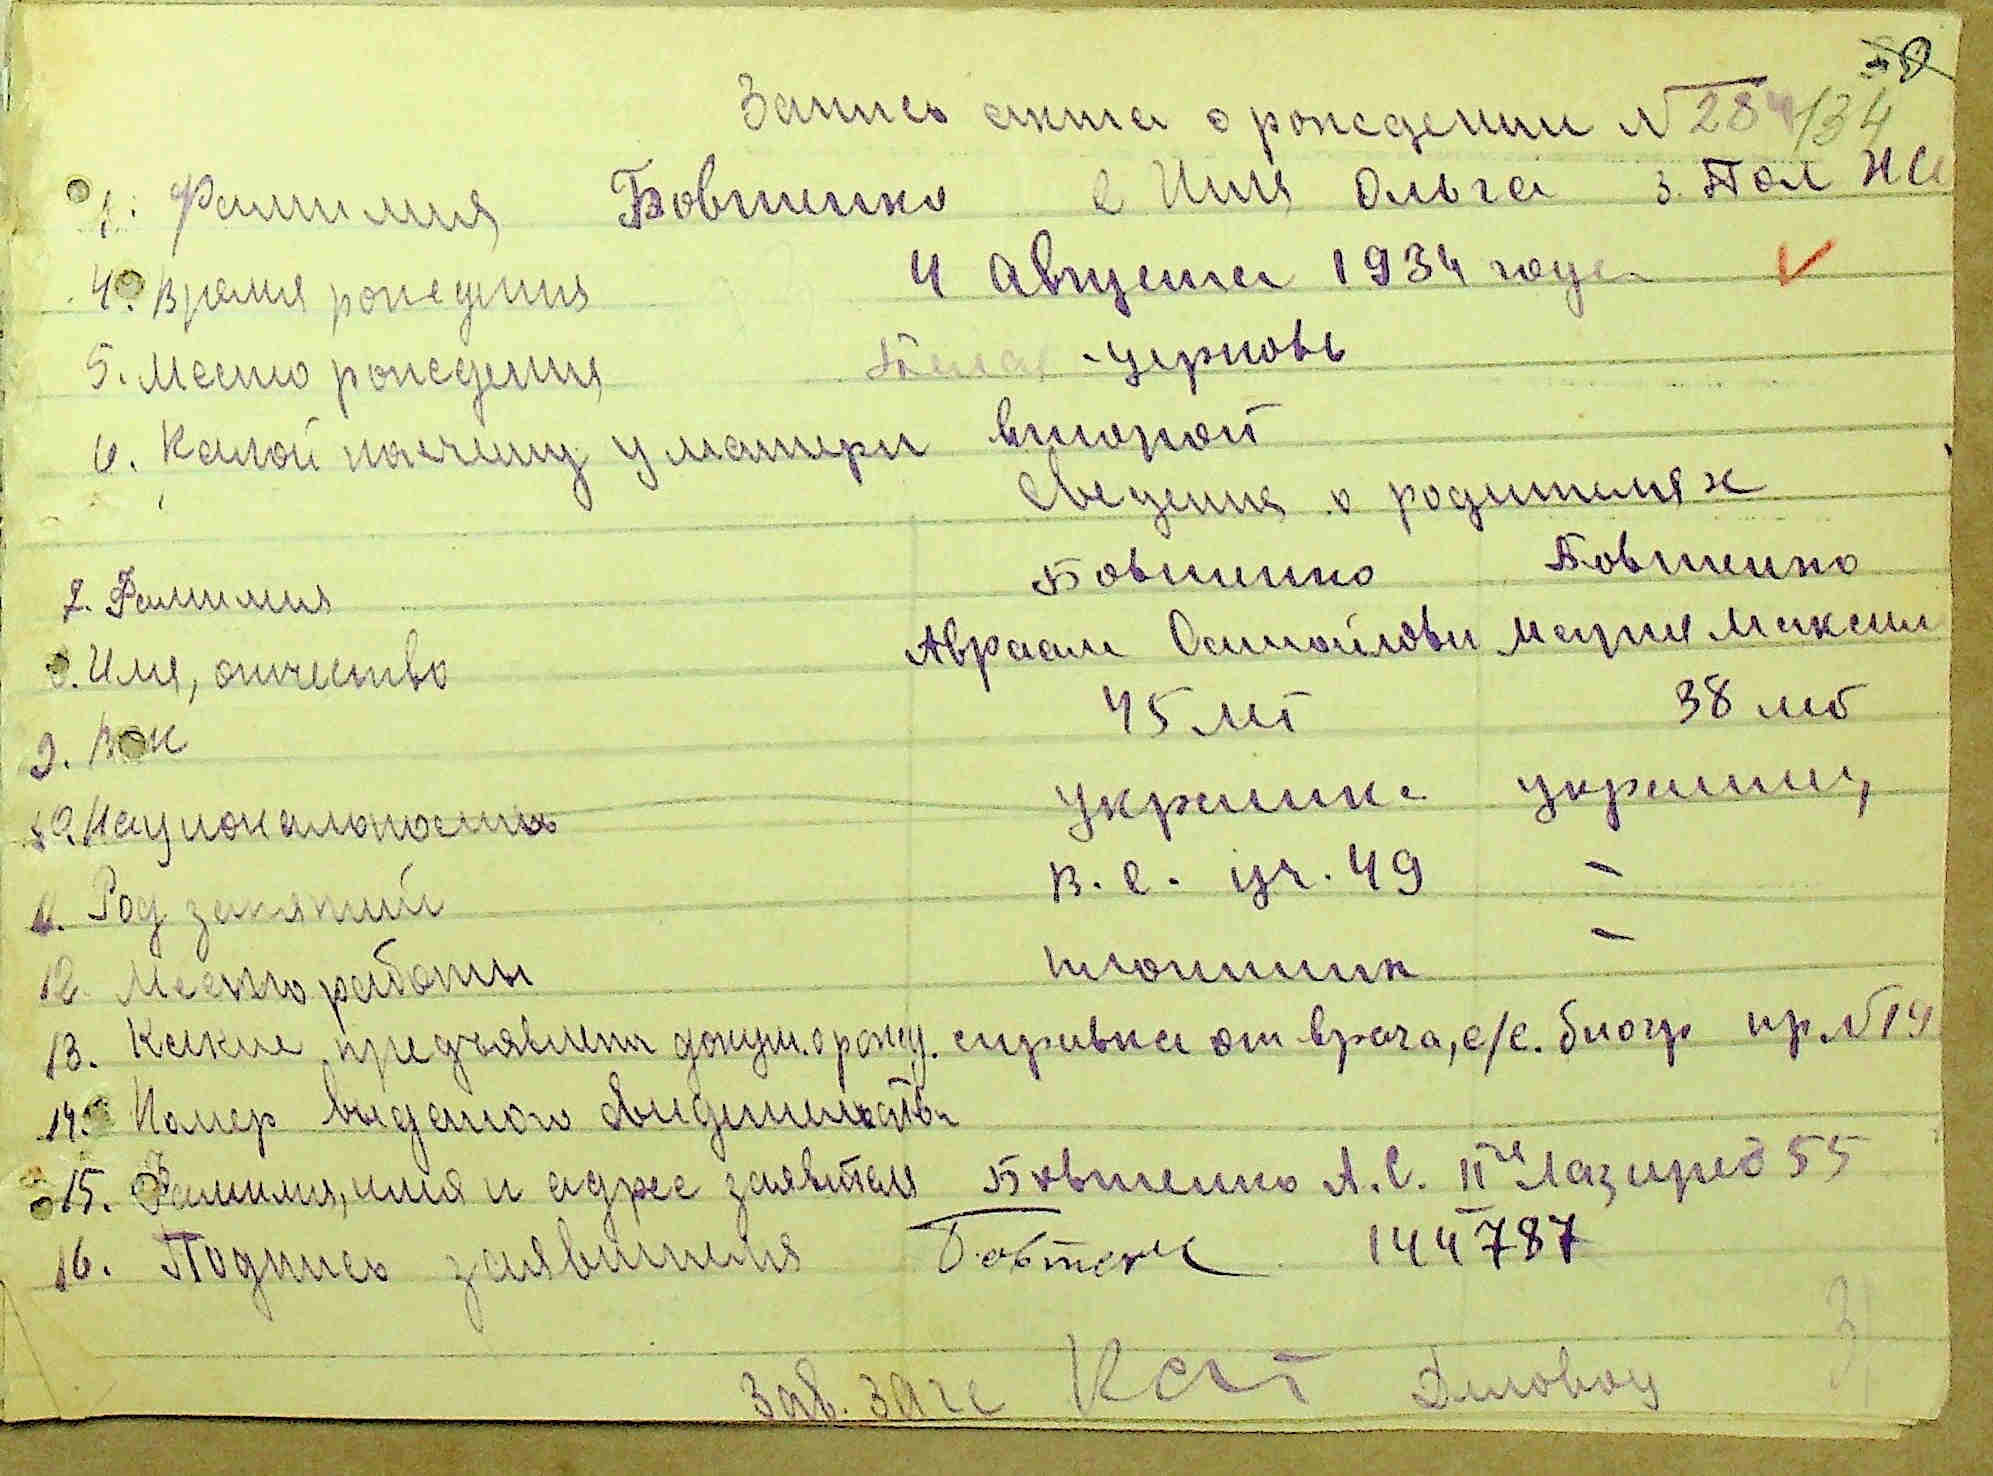 Запись акта о рождении N 284/34
1. Фамилия Бовтенко 2 Имя Ольга 3. Пол Ж
4. Время рождения 4 Августа 1934 года
5. Место рождения Белая-Церковь
6. Какой по счету у матери второй
Сведения о родителях
7. Фамилия Бовтенко Бовтенко
8. Имя, отчество Авраам Самойлови Мария Максим
9. 45 лет 38 лет
10. Национальность украинка украинец
11. Род занятий в. с. уч. 49 -
12. Место работы плотник -
13. Какие предъявлены докум. о рожд. справка от врача, с/с. пр. N 14
14. Номер выданого свидетельства
15. Фамилия, имя и адрес заявителя Бовтенко А. С. 55
16. Подпись заявителя 144787
Зав. Загс